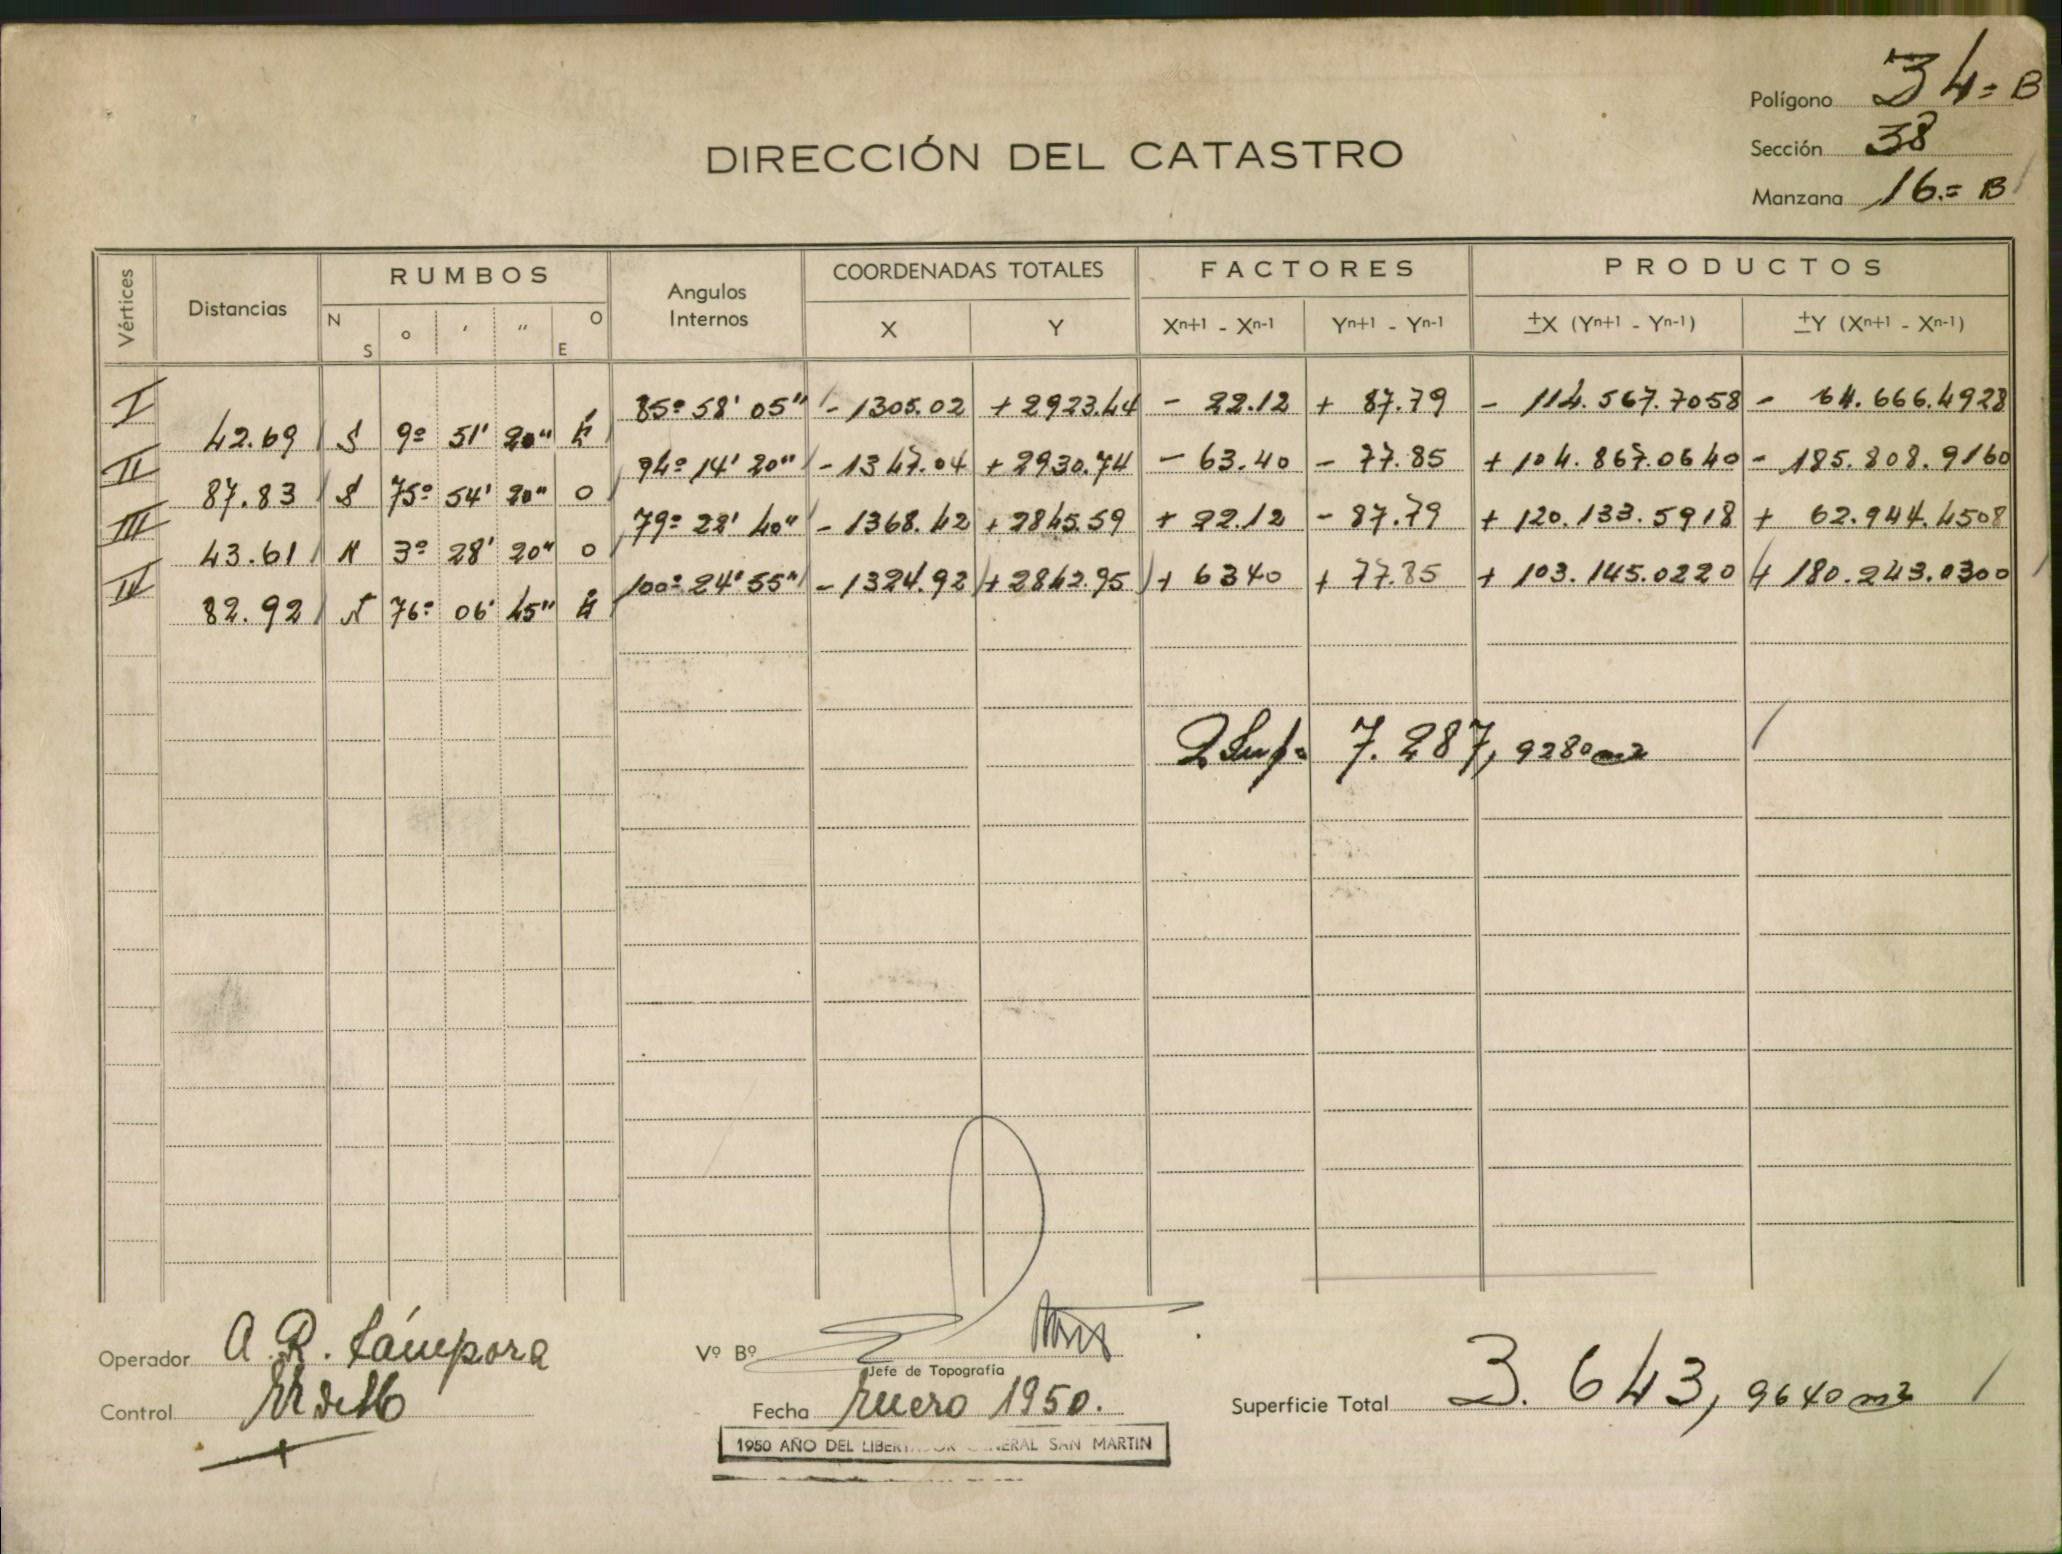 Polígono 34=B
Sección 38
Manzana 16.=B
DIRECCIÓN DEL CATASTRO
Vértices Distancias RUMBOS Angulos Internos COORDENADAS TOTALES FACTORES PRODUCTOS
N S ° ' " O E X Y Xn+1 - Xn-1 Yn+1 - Yn-1 ±X (Yn+1 - Yn-1) ±Y (Xn+1 - Xn-1)
I 85º 58' 05" - 1305.02 + 2923.44 - 22.12 + 87.79 - 114.567.7058 - 64.666.4928
42.69 S 9º 51' 20" E
II 94º 14' 20" - 1347.04 + 2930.74 - 63.40 - 77.85 + 104.867.0640 - 185.808.9160
87.83 S 75º 54' 20" O
III 79º 22' 40" - 1368.42 + 2845.59 + 22.12 - 87.79 + 120.133.5918 + 62.944.4508
43.61 N 3º 28' 20" O
IV 100º 24' 55" - 1324.92 + 2842.95 + 6340 + 77.85 + 103.145.0220 + 180.243.0300
82.92 N 76º 06' 45" E
2 Sup= 7.287,9280 m2
Operador A. R. Cámpora
Vº Bº
Jefe de Topografía
Control
Fecha Enero 1950.
Superficie Total 3.643,9640 m2
1950 AÑO DEL LIBERTADOR GENERAL SAN MARTIN